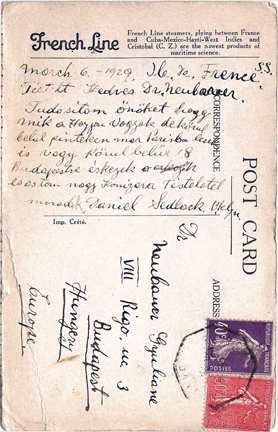 French Line
French Line steamers, plying between France
and Cuba-Mexico-Hayti-West Indies and
Cristobal (C. Z.) are the newest products of
maritime science.
March 6,-1929, Ile, Fe, Frence S.S.
Tiszt kedves Dr. Neubauer.
Tudositom önöket hogy
mik a Hozzan vagyok
belül pinteken mar Parisba
is vagy Körul belül 18
Budapestre erkezek
es ostan nagy Testeletel
maradok Daniel Sedlock,
Imp. Crété.
CORRESPONDENCE
POST CARD
ADDRESS
Dr
Neubauer Gyuláné
VIII Rigo, u. 3
Budapest
Hungery
Europe
40c
POSTES
50c